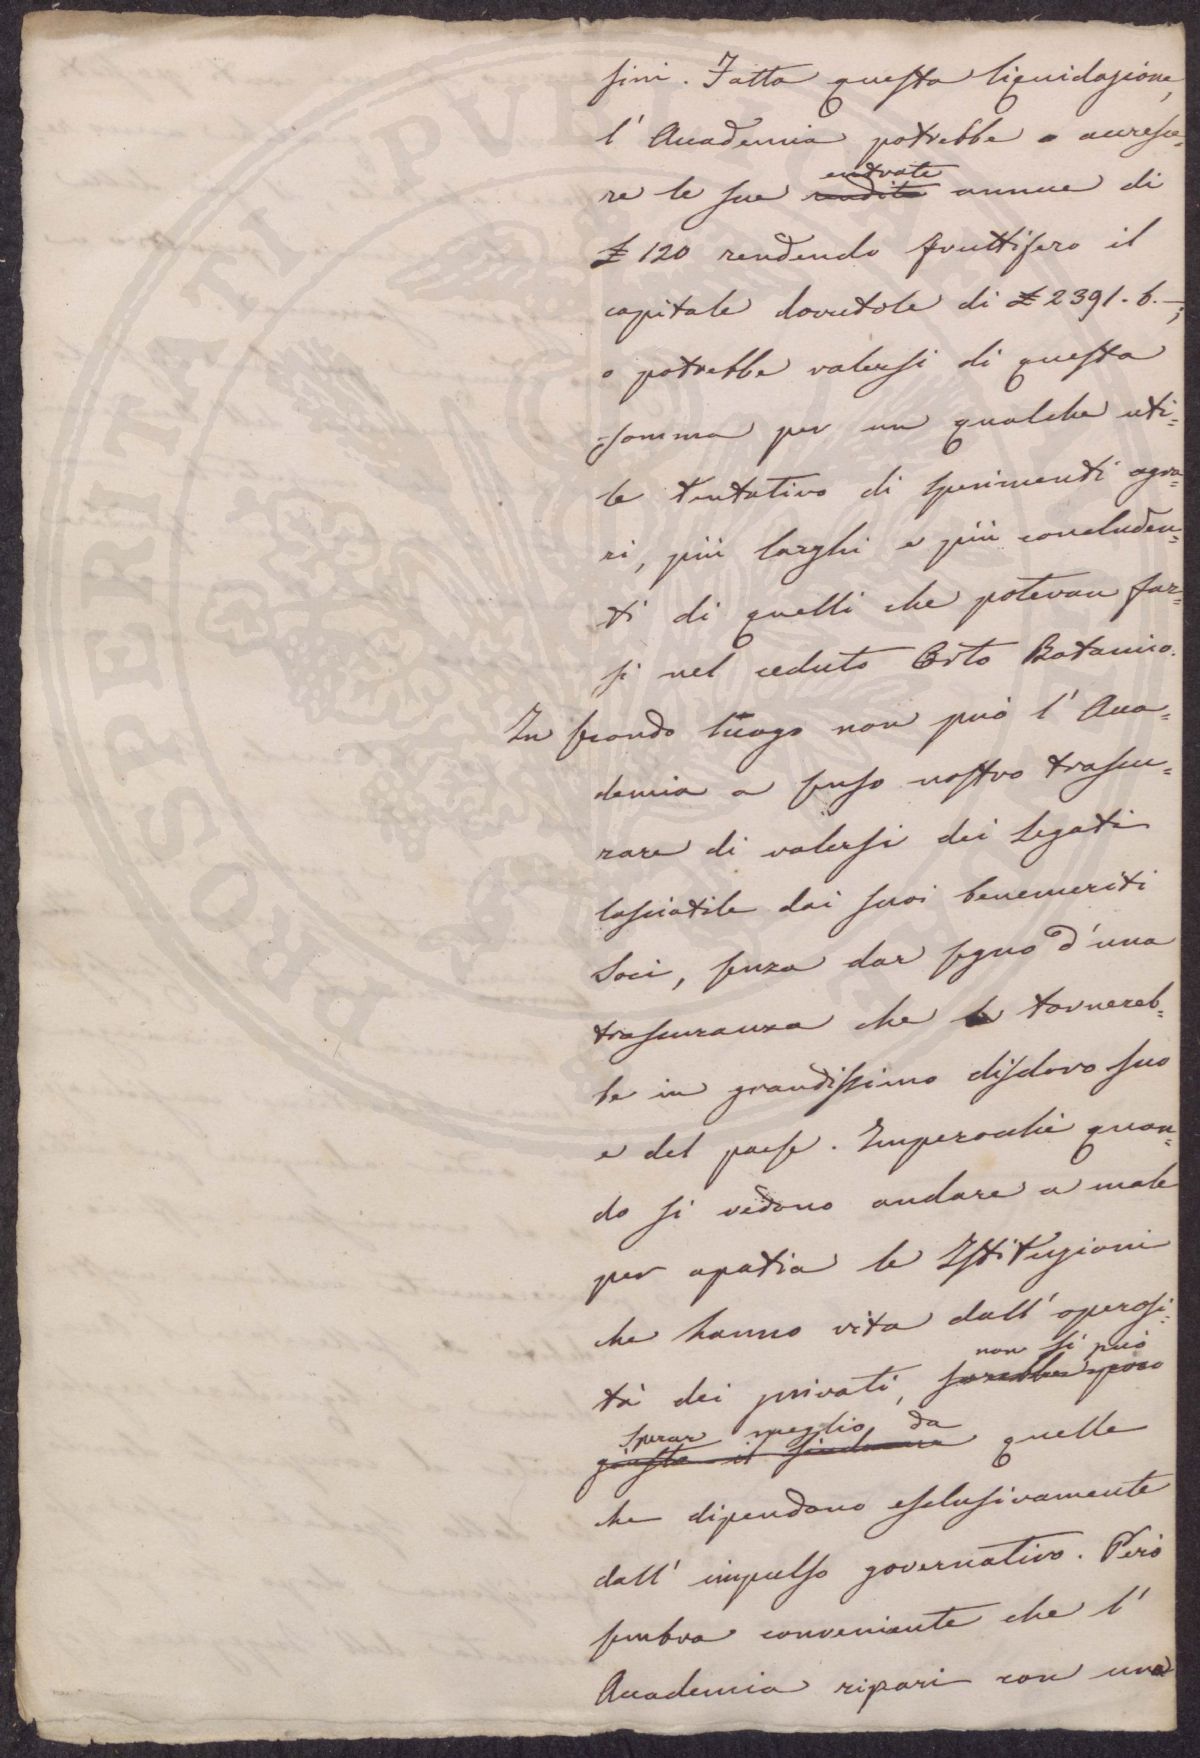 sini. Fatta questa liquidazione,
l'Accademia potrebbe o accresce=
re le sue rendite entrate annue di
£ 120 rendendo fruttifero il
capitale dovutole di £ 2391. 6. —;
o potrebbe valersi di questa
somma per un qualche uti=
le tentativo di sperimenti agra=
ri, più larghi e più concluden=
ti di quelli che potevan far=
si nel ceduto Orto Botanico.
In secondo luogo non può l'Acca=
demia a senso nostro trascu=
rare di valersi dei legati
lasciatile dai suoi benemeriti
Soci, senza dar segno d'una
trascuranza che tornereb=
be in grandissimo disdoro suo
e del paese. Imperocchè quan=
do si vedono andare a male
per apatia le Istituzioni
che hanno vita dall'operosi=
non si può
tà dei privati, sarebbe poco
sperar meglio da
giusto il quelle
che dipendono esclusivamente
dall'impulso governativo. Però
sembra conveniente che l'
Accademia ripari con una
PROSPERITATI PUBLICAE